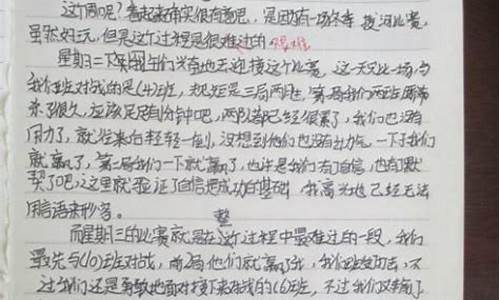 这个周呢?看起来确实很有意思,是因为有一场冬季拔河比赛,
虽然好玩,但是这个过程是很难过的 很难
星期二下午我们兴奋地去迎接这个比赛,这一天只比一场与
我们班对战的是(4)班,规矩是三局两胜,第一局我们两班
来了很久,应该足足有1分钟吧,两队都已经很累了,我们也没有
用力了,就往来白轻轻一,没想到他们也没有出力气,一下子我们
就赢了,第二局我们一下就赢了,也许是我们有了自信,也有默
契了吧,这里就验证了自信是成功的基础,我高兴地已经无法
用言语来形容。
整
而星期三的比赛就是在这个过程中最难过的一段,我们
最先与(10)班对战,前2局他们就赢了我,我们班,不
过我们还是勇敢地面对接下来对战的(6)班,不过我们又输了